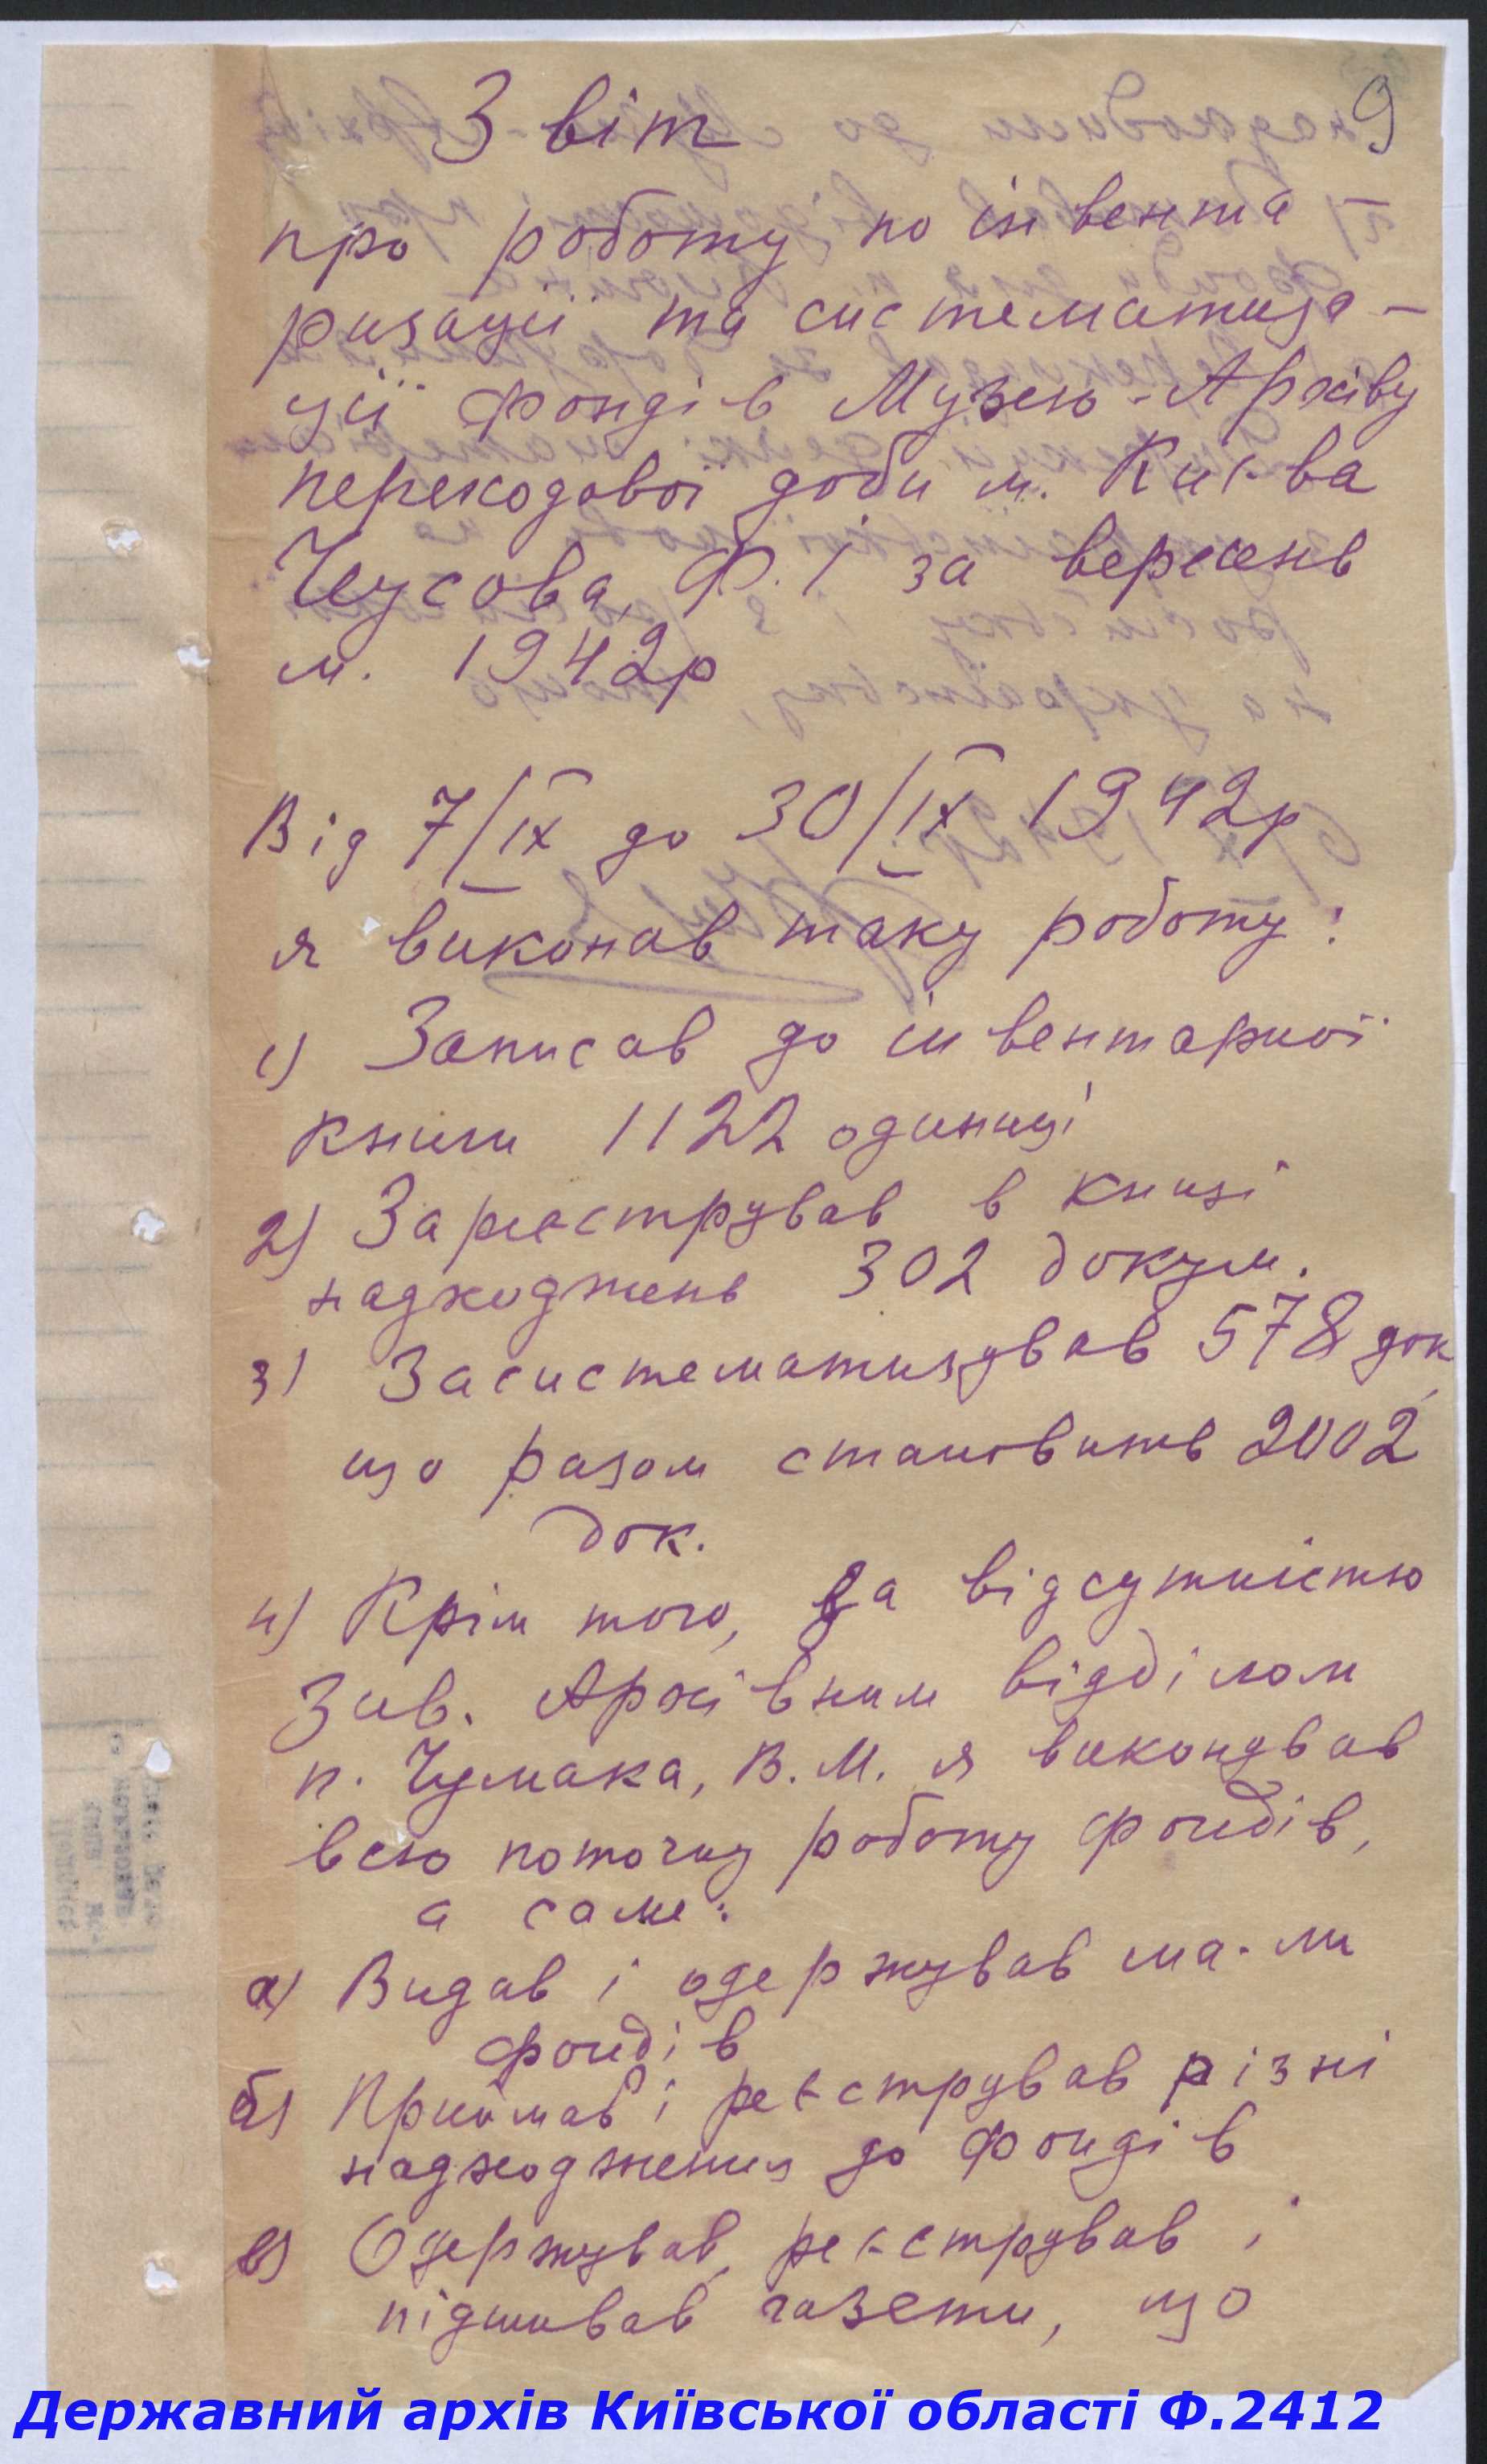 9
Звіт
про роботу по інвента-
ризації та систематиза-
ції фондів Музею-Архіву
переходової доби м. Києва
Чусова, Ф. І за вересень
м. 1942р
Від 7/IX до 30/IX 1942р
я виконав таку роботу:
1) Записав до інвентарної
книги 1122 одиниці
2) Зареєстрував в книзі
надходжень 302 докум.
3) Засистематизував 578 док,
що разом становить 2002
док.
4) Крім того, за відсутністю
Зав. Архівним відділом
п. Чумака, В. М. я виконував
всю поточну роботу фондів,
а саме:
а) Видав і одержував ма-ли
фондів
б) Приймав і реєстрував різні
надходження до фондів
в) Одержував, реєстрував і
підшивав газети, що
Державний архів Київської області Ф.2412